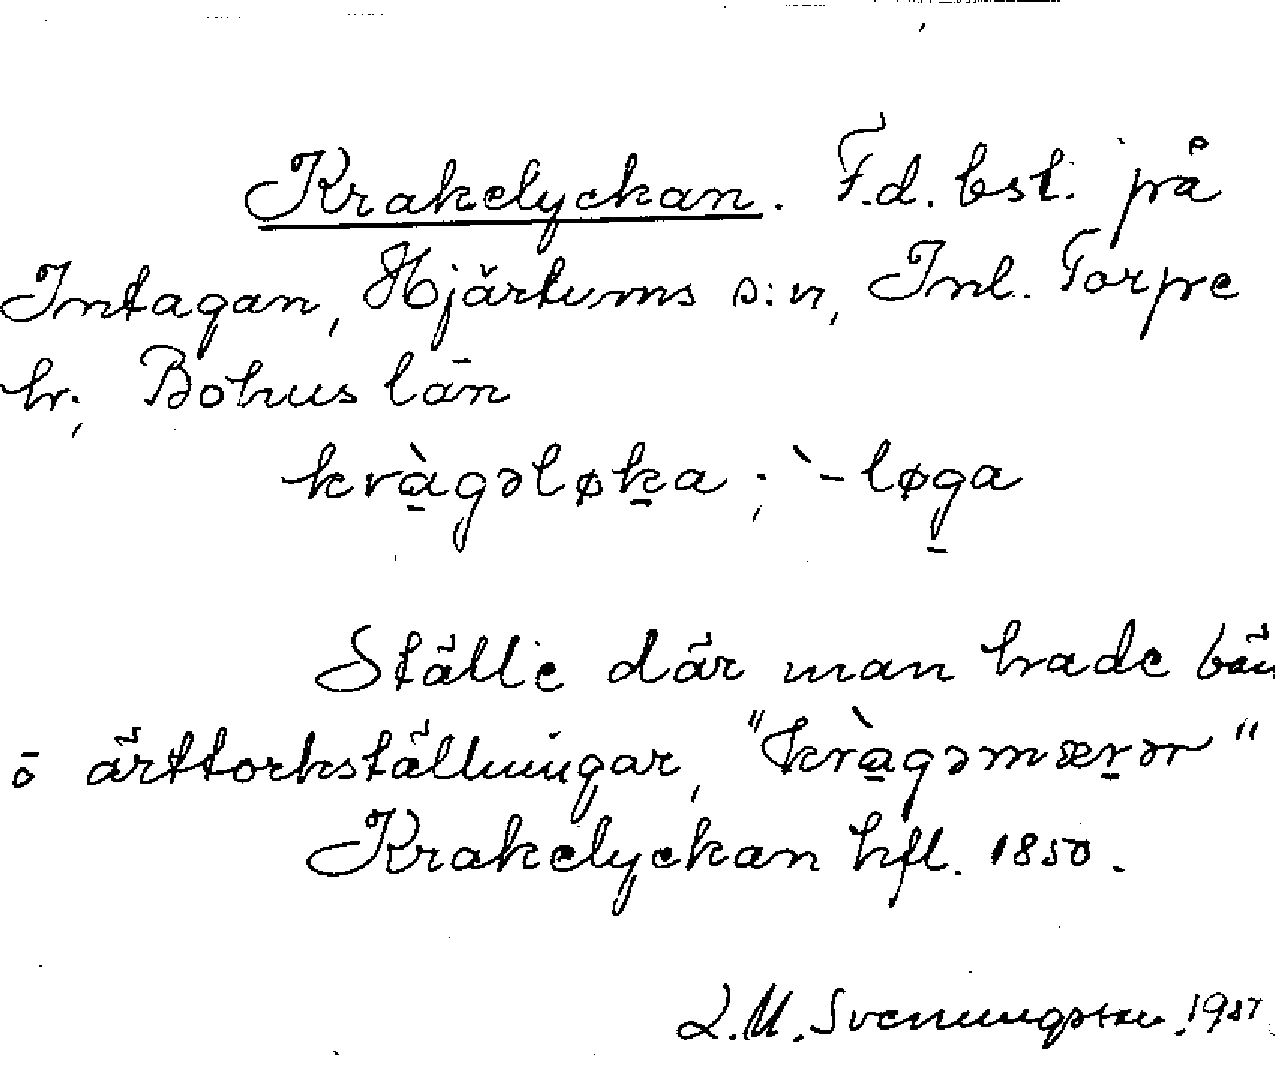 Krakelyckan. F.d. bst. på
Intagan, Hjärtums s:n, Inl. Torpe
hr, Bohus län
kràgəløka ; `-løga
Ställe där man hade bön
o ärttorkställningar, "kràgəmærər"
Krakelyckan hfl. 1850.
L.M. Svenungsson 1957